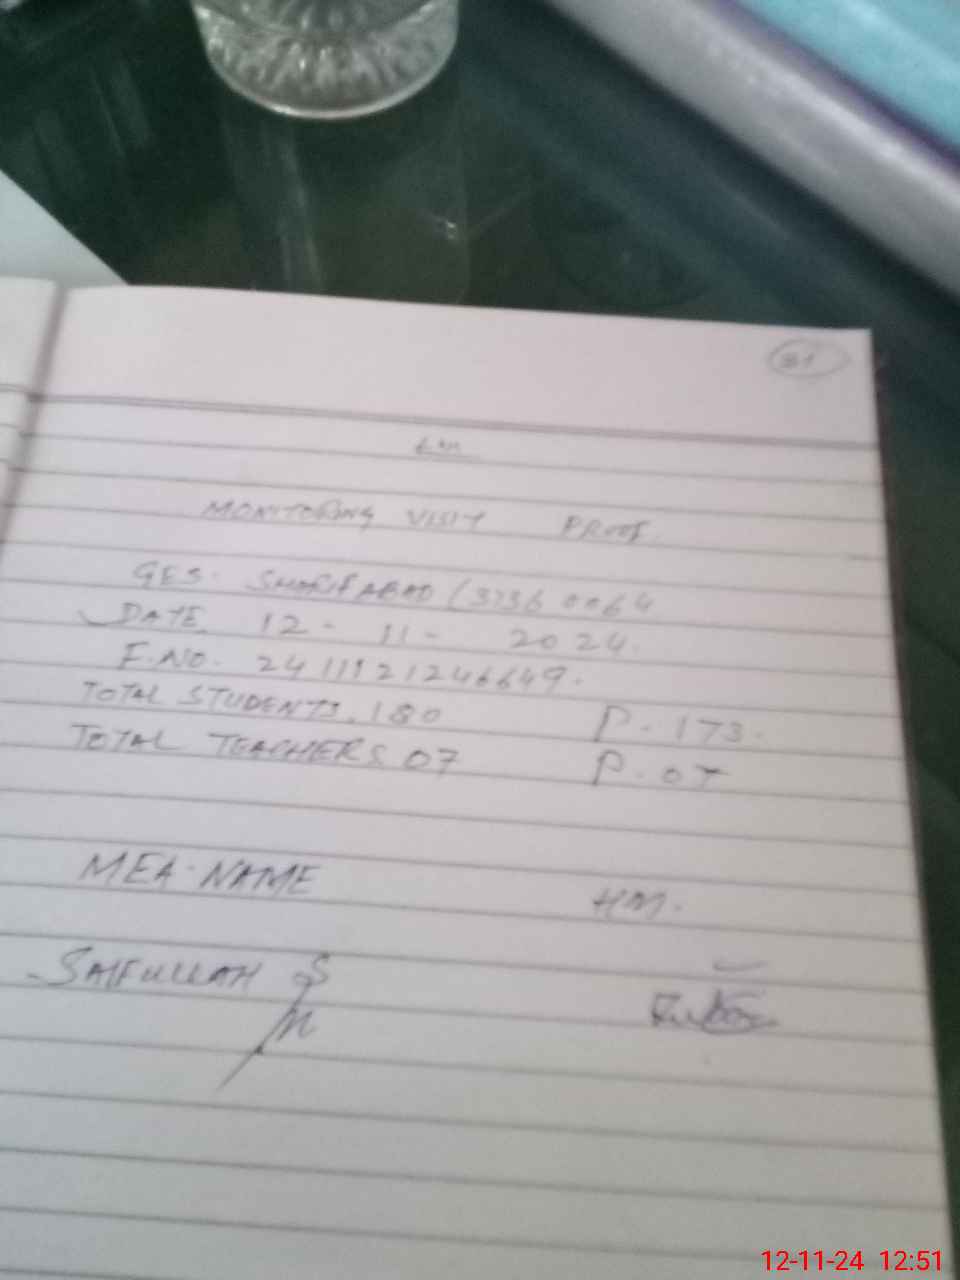 81
MONITORING VISIT PROOF
GES. SHARIFABAD / 37360064
DATE. 12 - 11 - 2024.
F.NO. 24111921246649.
TOTAL STUDENTS. 180 P - 173.
TOTAL TEACHERS 07 P. 07
MEA. NAME HM.
SAIFULLAH
12-11-24 12:51